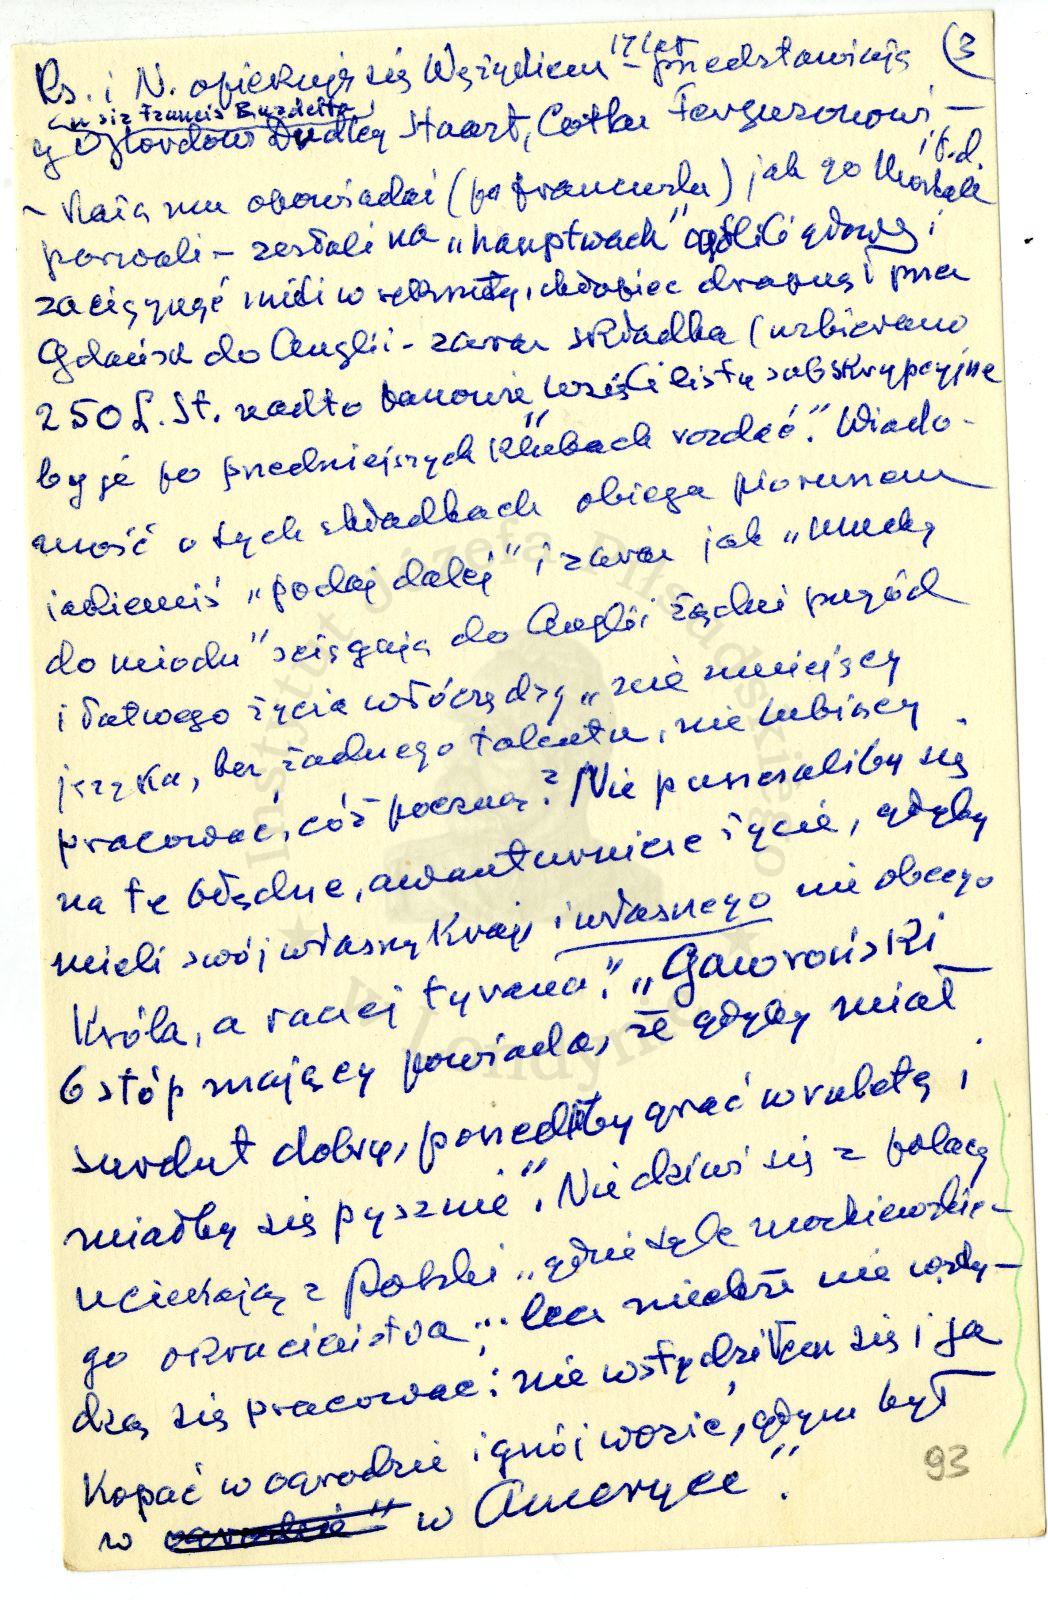 (3
Ks. i N. opiekują się Wężykiem 17 lat – przedstawiają
(u sir Francis Burdetta)
Lordowi Dudley Stuart, Cotku Fergusonowi –
i t.d.
– każą mu opowiadać (po francusku) jak go Moskali
porwali – zesłali na „hauptwach" ogolili głowę i
zaciągnąć mieli w rekruty, chłopiec drapnął przez
Gdańsk do Anglii – zaraz składka (uzbierano
250 £. St. nadto panowie wzięli listy subskrypcyjne
by je po przedniejszych klubach rozdać." Wiado-
mość o tych składkach obiega piorunem
„podaj dalej" i zaraz jak „muchy
do miodu" ściągają do Anglii żądni przygód
i łatwego życia włóczędzy „nie umiejący
języka, bez żadnego talentu, nie lubiący
pracować, cóż poczną? Nie puszczaliby się
na te błędne, awanturnicze życie, gdyby
mieli swój własny kraj, i własnego nie obcego
Króla, a raczej tyrana". „Gaworoński
6 stóp mający powiada, że gdyby miał
surdut dobry, poszedłby grać w ruletę i
miałby się pysznie". Nie dziwi się z polacy
uciekają z Polski „gdzie tyle moskiewskie-
go okrucieństwa"... lecz niechże nie wsty-
dzą się pracować: nie wstydziłem się i ja
kopać w ogrodzie i gnój wozić, gdym był
w ogrodzie" w Ameryce".
93
Instytut Józefa Piłsudskiego
w Londynie